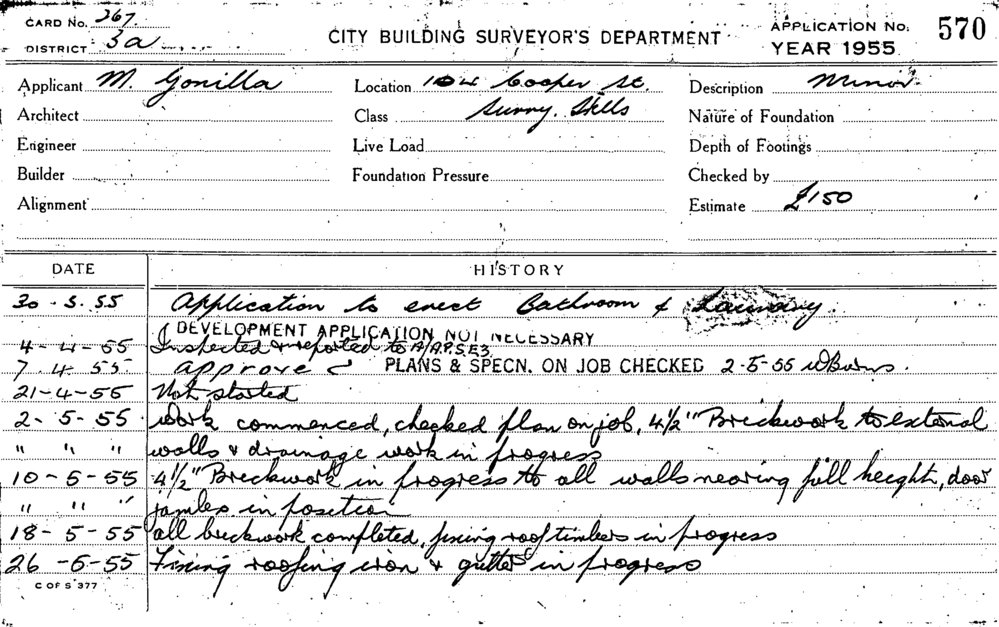 CARD No. 267.
DISTRICT 3a
CITY BUILDING SURVEYOR'S DEPARTMENT
APPLICATION No. 570
YEAR 1955
Applicant M. Gonilla
Location 104 Cooper St.
Description Minor
Architect
Class Surry. Hills
Nature of Foundation
Engineer
Live Load
Depth of Footings
Builder
Foundation Pressure
Checked by
Alignment
Estimate £150
DATE HISTORY
30.3.55 Application to erect Bathroom & Laundry.
DEVELOPMENT APPLICATION NOT NECESSARY
4-4-55 Inspected & reported to
7.4.55 approve PLANS & SPECN. ON JOB CHECKED 2-5-55
21-4-55 Not started
2-5-55 work commenced, checked plan on job, 4½" Brickwork to external
" " " walls & drainage work in progress
10-5-55 4½" Brickwork in progress to all walls nearing full height, door
" " " jambs in position
18-5-55 all brickwork completed, fixing roof timbers in progress
26-5-55 Fixing roofing iron & gutter in progress
C OF S 377